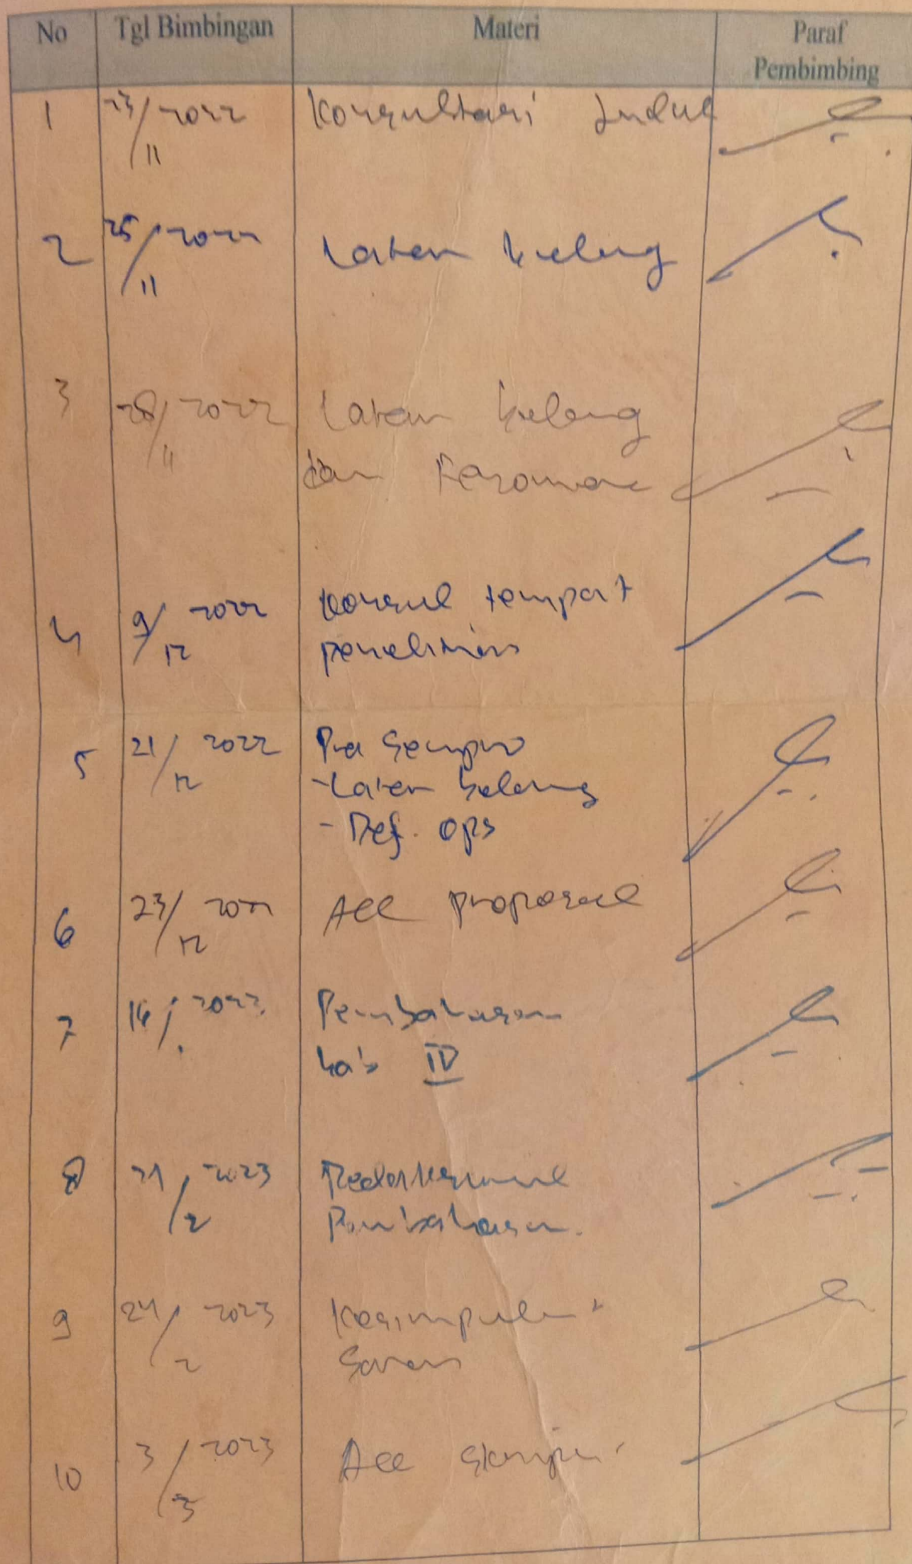 No Tgl Bimbingan Materi Paraf Pembimbing
1 23/11 2022 Konsultasi Judul
2 25/11 2022 Latar belakang
3 28/11 2022 Latar belakang
dan
4 9/12 2022 Konsul tempat
penelitian
5 21/12 2022 Pra Sempro
- Latar belakang
- Def. ops
6 23/12 2022 Acc proposal
7 16/ Pembahasan
bab IV
8 21/2 2023
Pembahasan
9 24/2 2023 Kesimpulan +
Saran
10 3/3 2023 Acc Skripsi